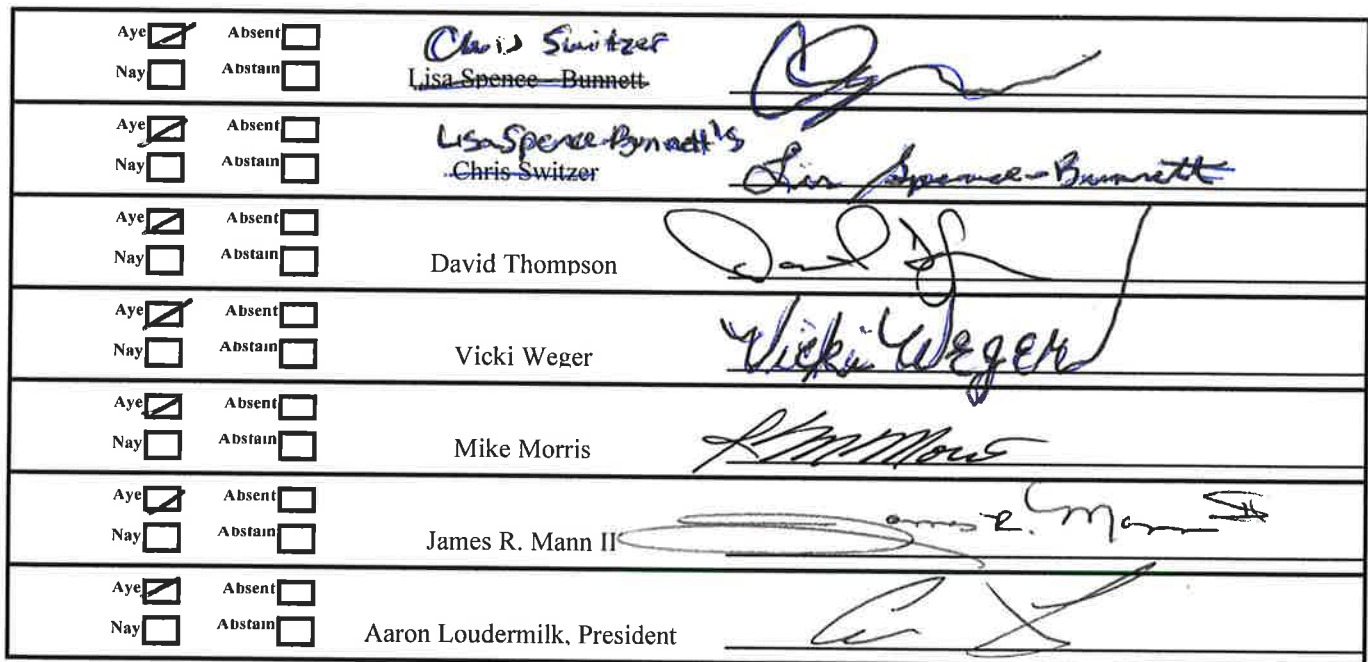 Aye Absent Chris Switzer
Nay Abstain Lisa Spence - Bunnett
Aye Absent Lisa Spence-Bunnett's
Nay Abstain Chris Switzer Lisa Spence-Bunnett
Aye Absent
Nay Abstain David Thompson
Aye Absent
Nay Abstain Vicki Weger Vicki Weger
Aye Absent
Nay Abstain Mike Morris
Aye Absent
Nay Abstain James R. Mann II James R. Mann II
Aye Absent
Nay Abstain Aaron Loudermilk, President